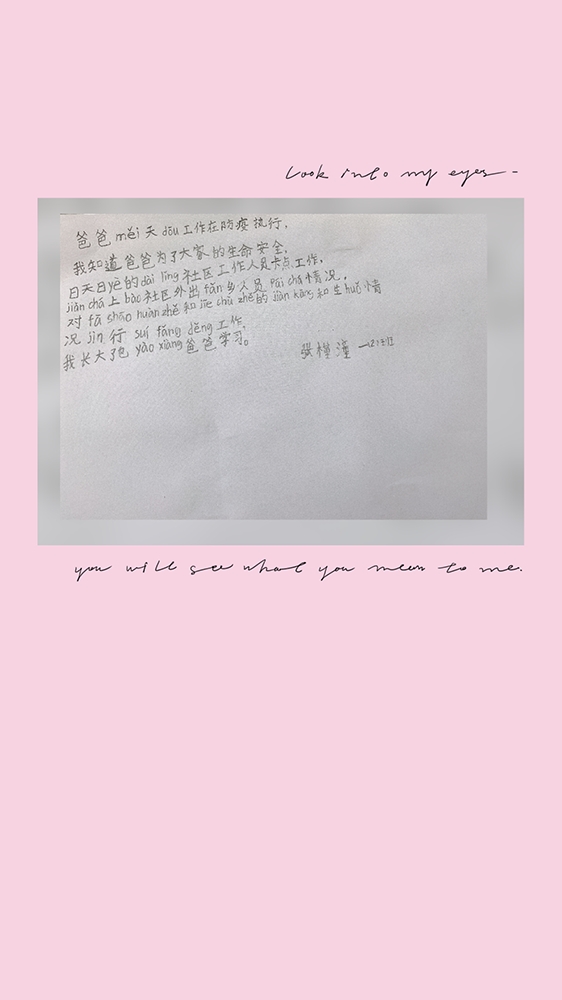 Look into my eyes -
爸爸měi天dōu工作在防疫执行,
我知道爸爸为了大家的生命安全,
日天日yè的dài lǐng社区工作人员卡点工作,
jiǎn chá上bào社区外出fǎn乡人员pái chá情况,
对fā shāo huàn zhě和jiē chù zhě的jiàn kāng和生huó情
况jìn行suí fǎng děng工作,
我长大了也yào xiàng爸爸学习。
张槿潼
you will see what you mean to me.